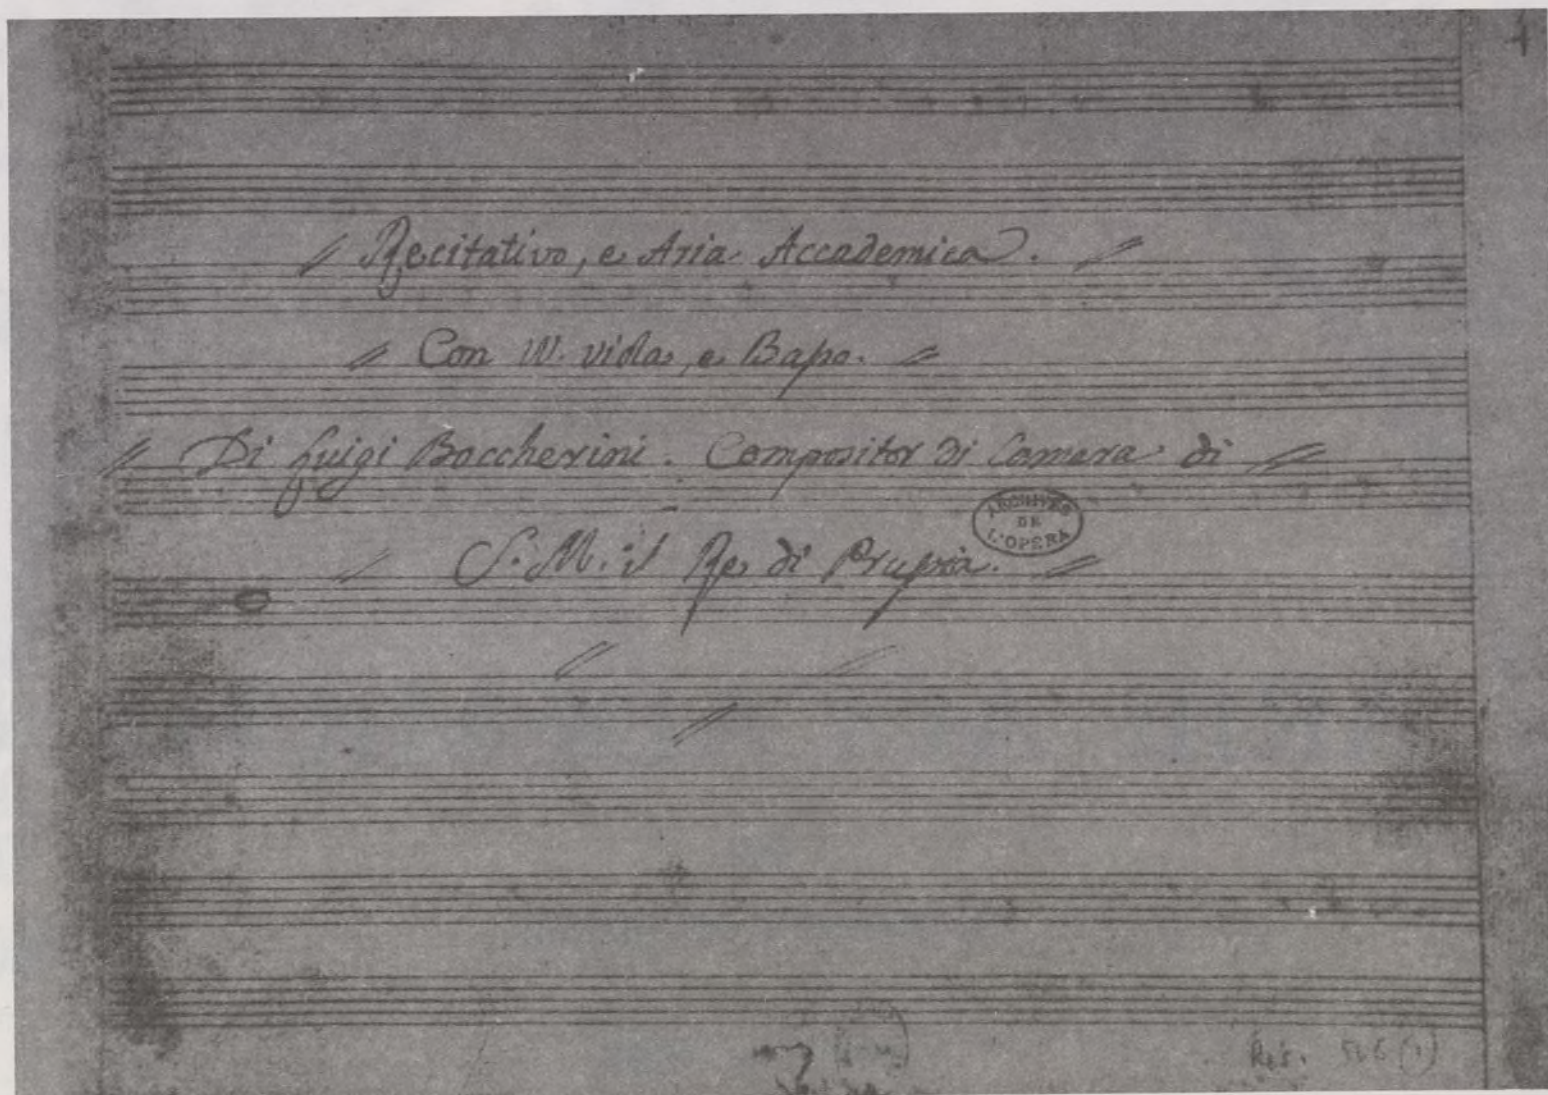 Recitativo, e Aria Accademica.
Con VV. viola, e Basso.
Di Luigi Boccherini. Compositor di Camera di
S. M. il Re di Prussia.
ARCHIVES
DE
L'OPERA